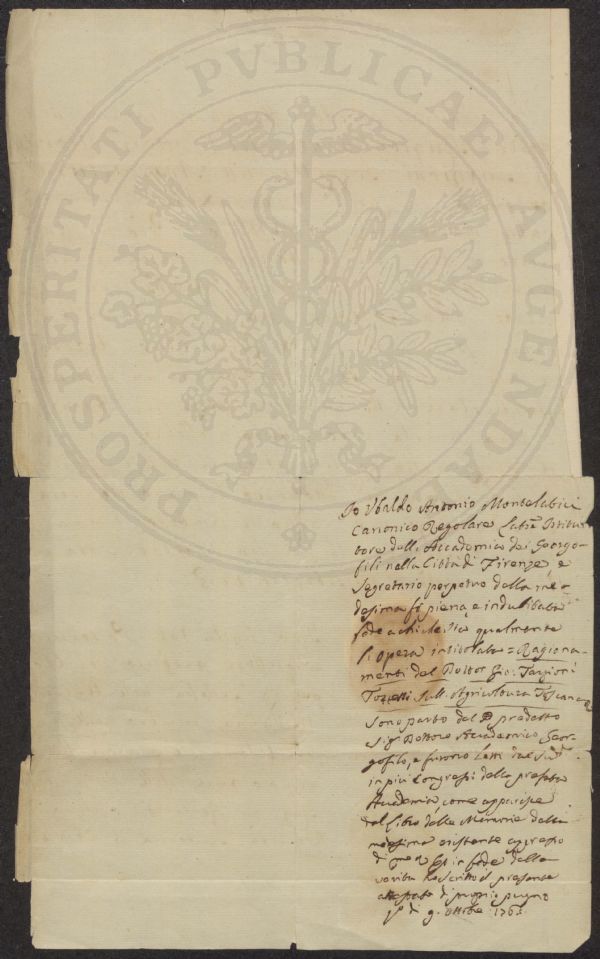 PROSPERITATI PVBLICAE AVGENDAE
Io Ubaldo Antonio Montelatici
Canonico Regolare Latñ Istitu-
tore della Accademia dei Georgo-
fili nella Città di Firenze, e
Segretario perpetuo della me-
desima fò piena, e indubitata
fede a chi qualmente
l'opera intitolata = Ragiona-
menti del Dottor Gio: Targioni
Tozzetti sull'Agricoltura Toscana =
sono parto del predetto
Sig.r Dottore Accademico Geor-
gofilo, e furono letti dal Sud.o
in più Congressi della prefata
Accademia, come apparisce
dal libro delle Memorie della
medesima esistente appresso
di me in fede della
verità ho scritto il presente
attestato di proprio pugno
q.o dì 9. Ottobre